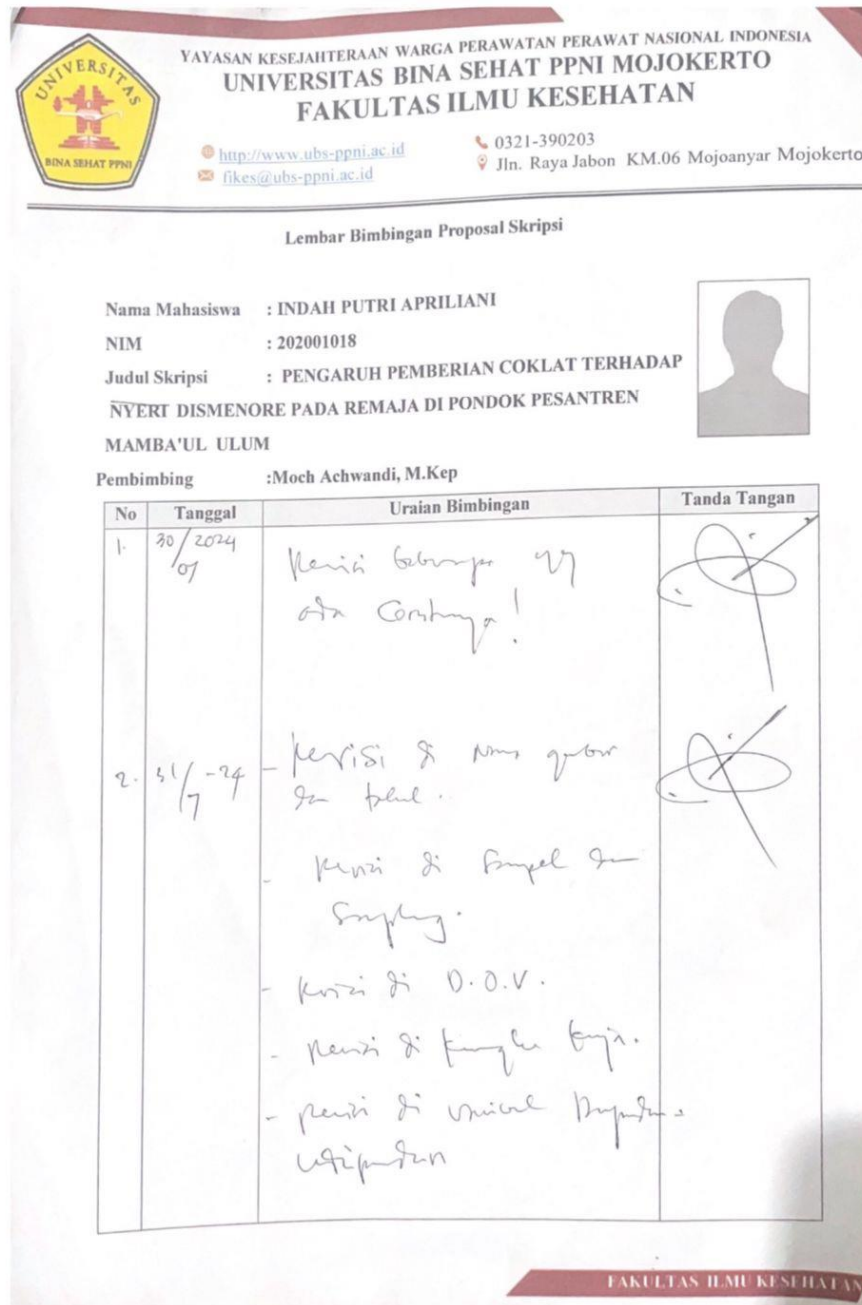 UNIVERSITAS
BINA SEHAT PPNI
YAYASAN KESEJAHTERAAN WARGA PERAWATAN PERAWAT NASIONAL INDONESIA
UNIVERSITAS BINA SEHAT PPNI MOJOKERTO
FAKULTAS ILMU KESEHATAN
http://www.ubs-ppni.ac.id
0321-390203
fikes@ubs-ppni.ac.id
Jln. Raya Jabon KM.06 Mojoanyar Mojokerto
Lembar Bimbingan Proposal Skripsi
Nama Mahasiswa : INDAH PUTRI APRILIANI
NIM : 202001018
Judul Skripsi : PENGARUH PEMBERIAN COKLAT TERHADAP
NYERI DISMENORE PADA REMAJA DI PONDOK PESANTREN
MAMBA'UL ULUM
Pembimbing :Moch Achwandi, M.Kep
No Tanggal Uraian Bimbingan Tanda Tangan
1. 30/07 2024 Revisi beberapa yg
ada !
2. 31/7 -24 - Revisi di
dan tabel.
- Revisi di Sampel dan
Sampling.
- Revisi di D.O.V.
- Revisi di kerangka kerja.
- Revisi di
FAKULTAS ILMU KESEHATAN